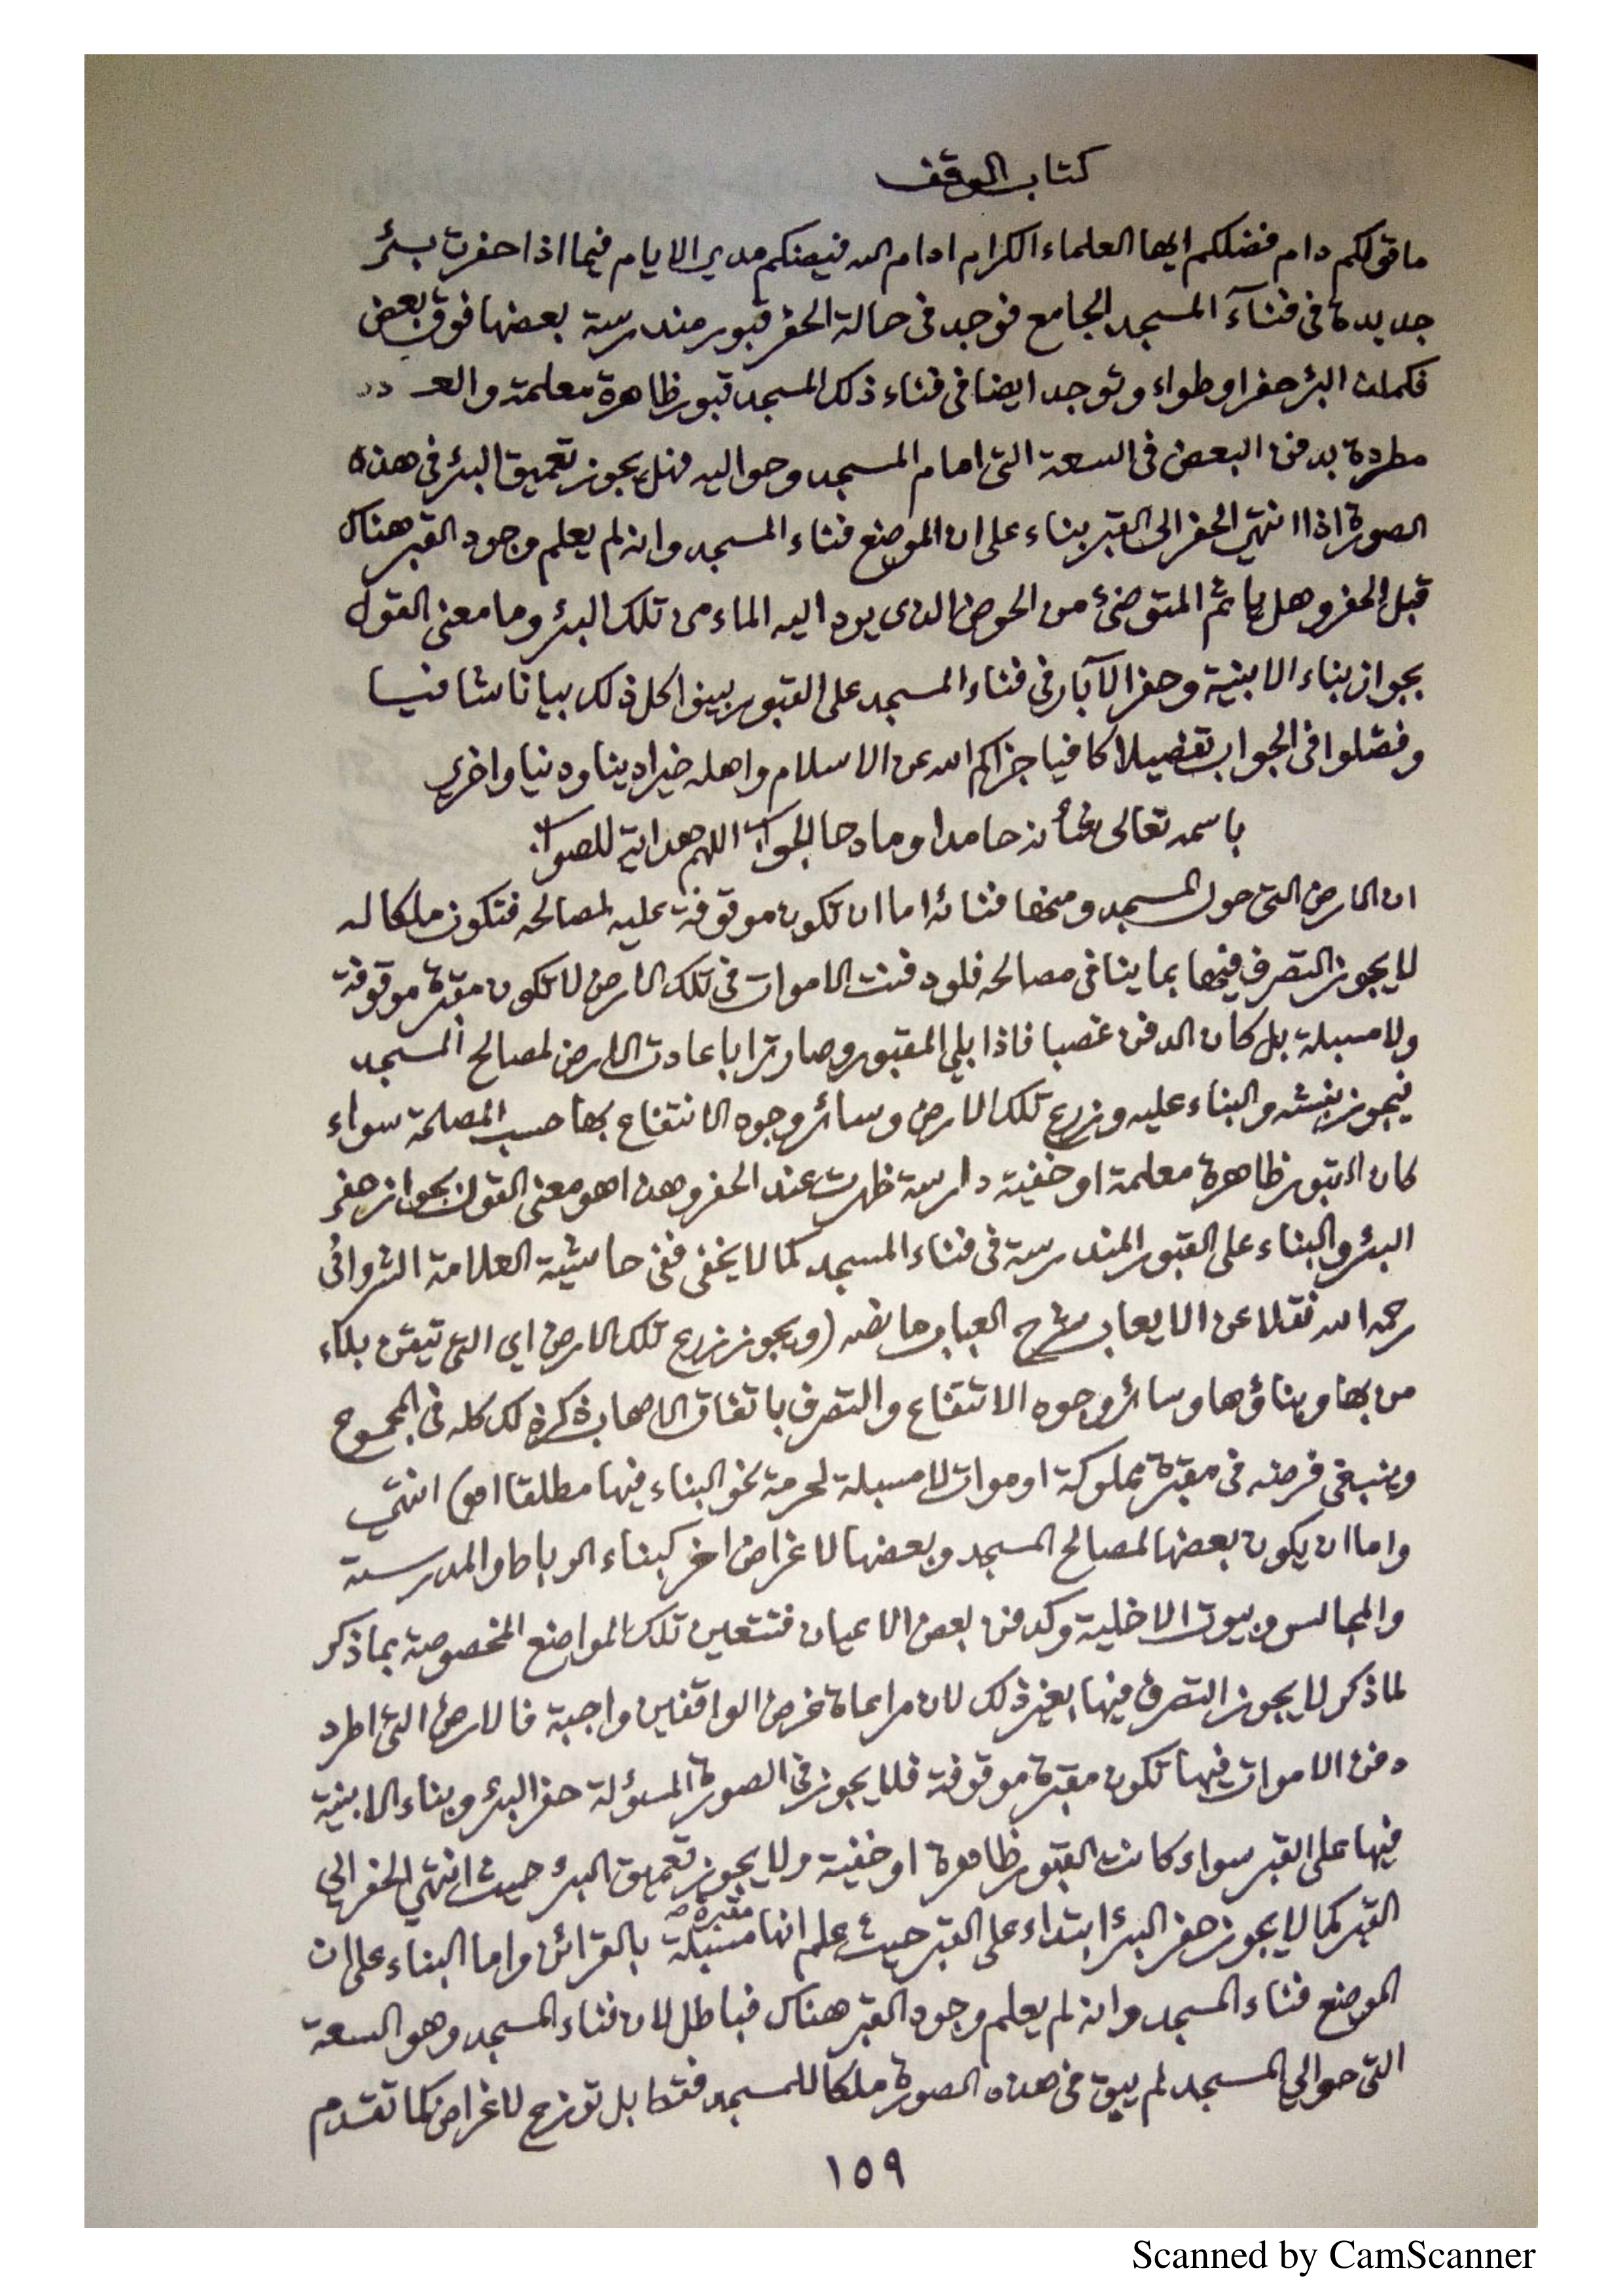 كتاب الوقف
ما قولكم دام فضلكم ايها العلماء الكرام ادام الله فيضكم مدى الايام فيما اذا حفرت بئر
جديدة فى فنآء المسجد الجامع فوجد فى حالة الحفر قبور مندرسة بعضها فوق بعض
فكملت البئر حفرا وطواء وتوجد ايضا فى فناء ذلك المسجد قبور ظاهرة معلمة والعـ
مطردة بدفن البعض فى السعة التى امام المسجد وحواليه فهل يجوز تعميق البئر فى هذه
الصورة اذا انتهى الحفر الى القبر بناء على ان الموضع فناء المسجد وانه لم يعلم وجود القبر هناك
قبل الحفر وهل ياثم المتوضئ من الحوض الذى يرد اليه الماء من تلك البئر وما معنى القول
بجواز بناء الابنية وحفر الآبار فى فناء المسجد على القبور بينوا كل ذلك بيانا شافيا
وفصّلوا فى الجواب تفصيلا كافيا جزاكم الله عن الاسلام واهله خيرا دينا ودنيا واخرى
باسمه تعالى شأنه حامدا ومادحا الجواب اللهم هداية للصواب
ان الارض التى حول المسجد ومنها فنائه اما ان تكون موقوفة عليه لمصالحه فتكون ملكا له
لا يجوز التصرف فيها بما ينافى مصالحه فلو دفنت الاموات فى تلك الارض لا تكون مقبرة موقوفة
ولا مسبلة بل كان الدفن غصبا فاذا بلي المقبور وصار ترابا عادت الارض لمصالح المسجد
فيجوز نبشه والبناء عليه وزرع تلك الارض وسائر وجوه الانتفاع بها حسب المصلحة سواء
كان القبور ظاهرة معلمة او خفية دارسة ظهرت عند الحفر وهذا هو معنى القول بجواز حفر
البئر والبناء على القبور المندرسة فى فناء المسجد كما لا يخفى ففى حاشية العلامة الشروانى
رحمه الله نقلا عن الايعاب شرح العباب ما نصه (ويجوز زرع تلك الارض اي التى تيقن بلاء
من بها وبناؤها وسائر وجوه الانتفاع والتصرف باتفاق الاصحاب ذكر ذلك كله فى المجموع
وينبغى فرضه فى مقبرة مملوكة او موات لا مسبلة لحرمة نحو البناء فيها مطلقا اهـ) انتهى
واما ان يكون بعضها لمصالح المسجد وبعضها لاغراض اخر كبناء الرباط والمدرسة
والمجالس وبيوت الاخلية وكدفن بعض الاعيان فتتعين تلك المواضع المخصوصة بما ذكر
لما ذكر لا يجوز التصرف فيها بغير ذلك لان مراعاة غرض الواقفين واجبة فالارض التى اطرد
دفن الاموات فيها تكون مقبرة موقوفة فلا يجوز فى الصورة المسؤلة حفر البئر وبناء الابنية
فيها على القبر سواء كانت القبور ظاهرة او خفية ولا يجوز تعميق البئر حيث انتهى الحفر الى
القبر كما لا يجوز حفر البئر ابتداء على القبر حيث علم انها مقبرة مسبلة بالقرائن واما البناء على ان
الموضع فناء المسجد وانه لم يعلم وجود القبر هناك فباطل لان فناء المسجد وهو السعة
التى حوالي المسجد لم يبق فى هذه الصورة ملكا للمسجد فقط بل توزع لاغراض كما تقدم
١٥٩
Scanned by CamScanner